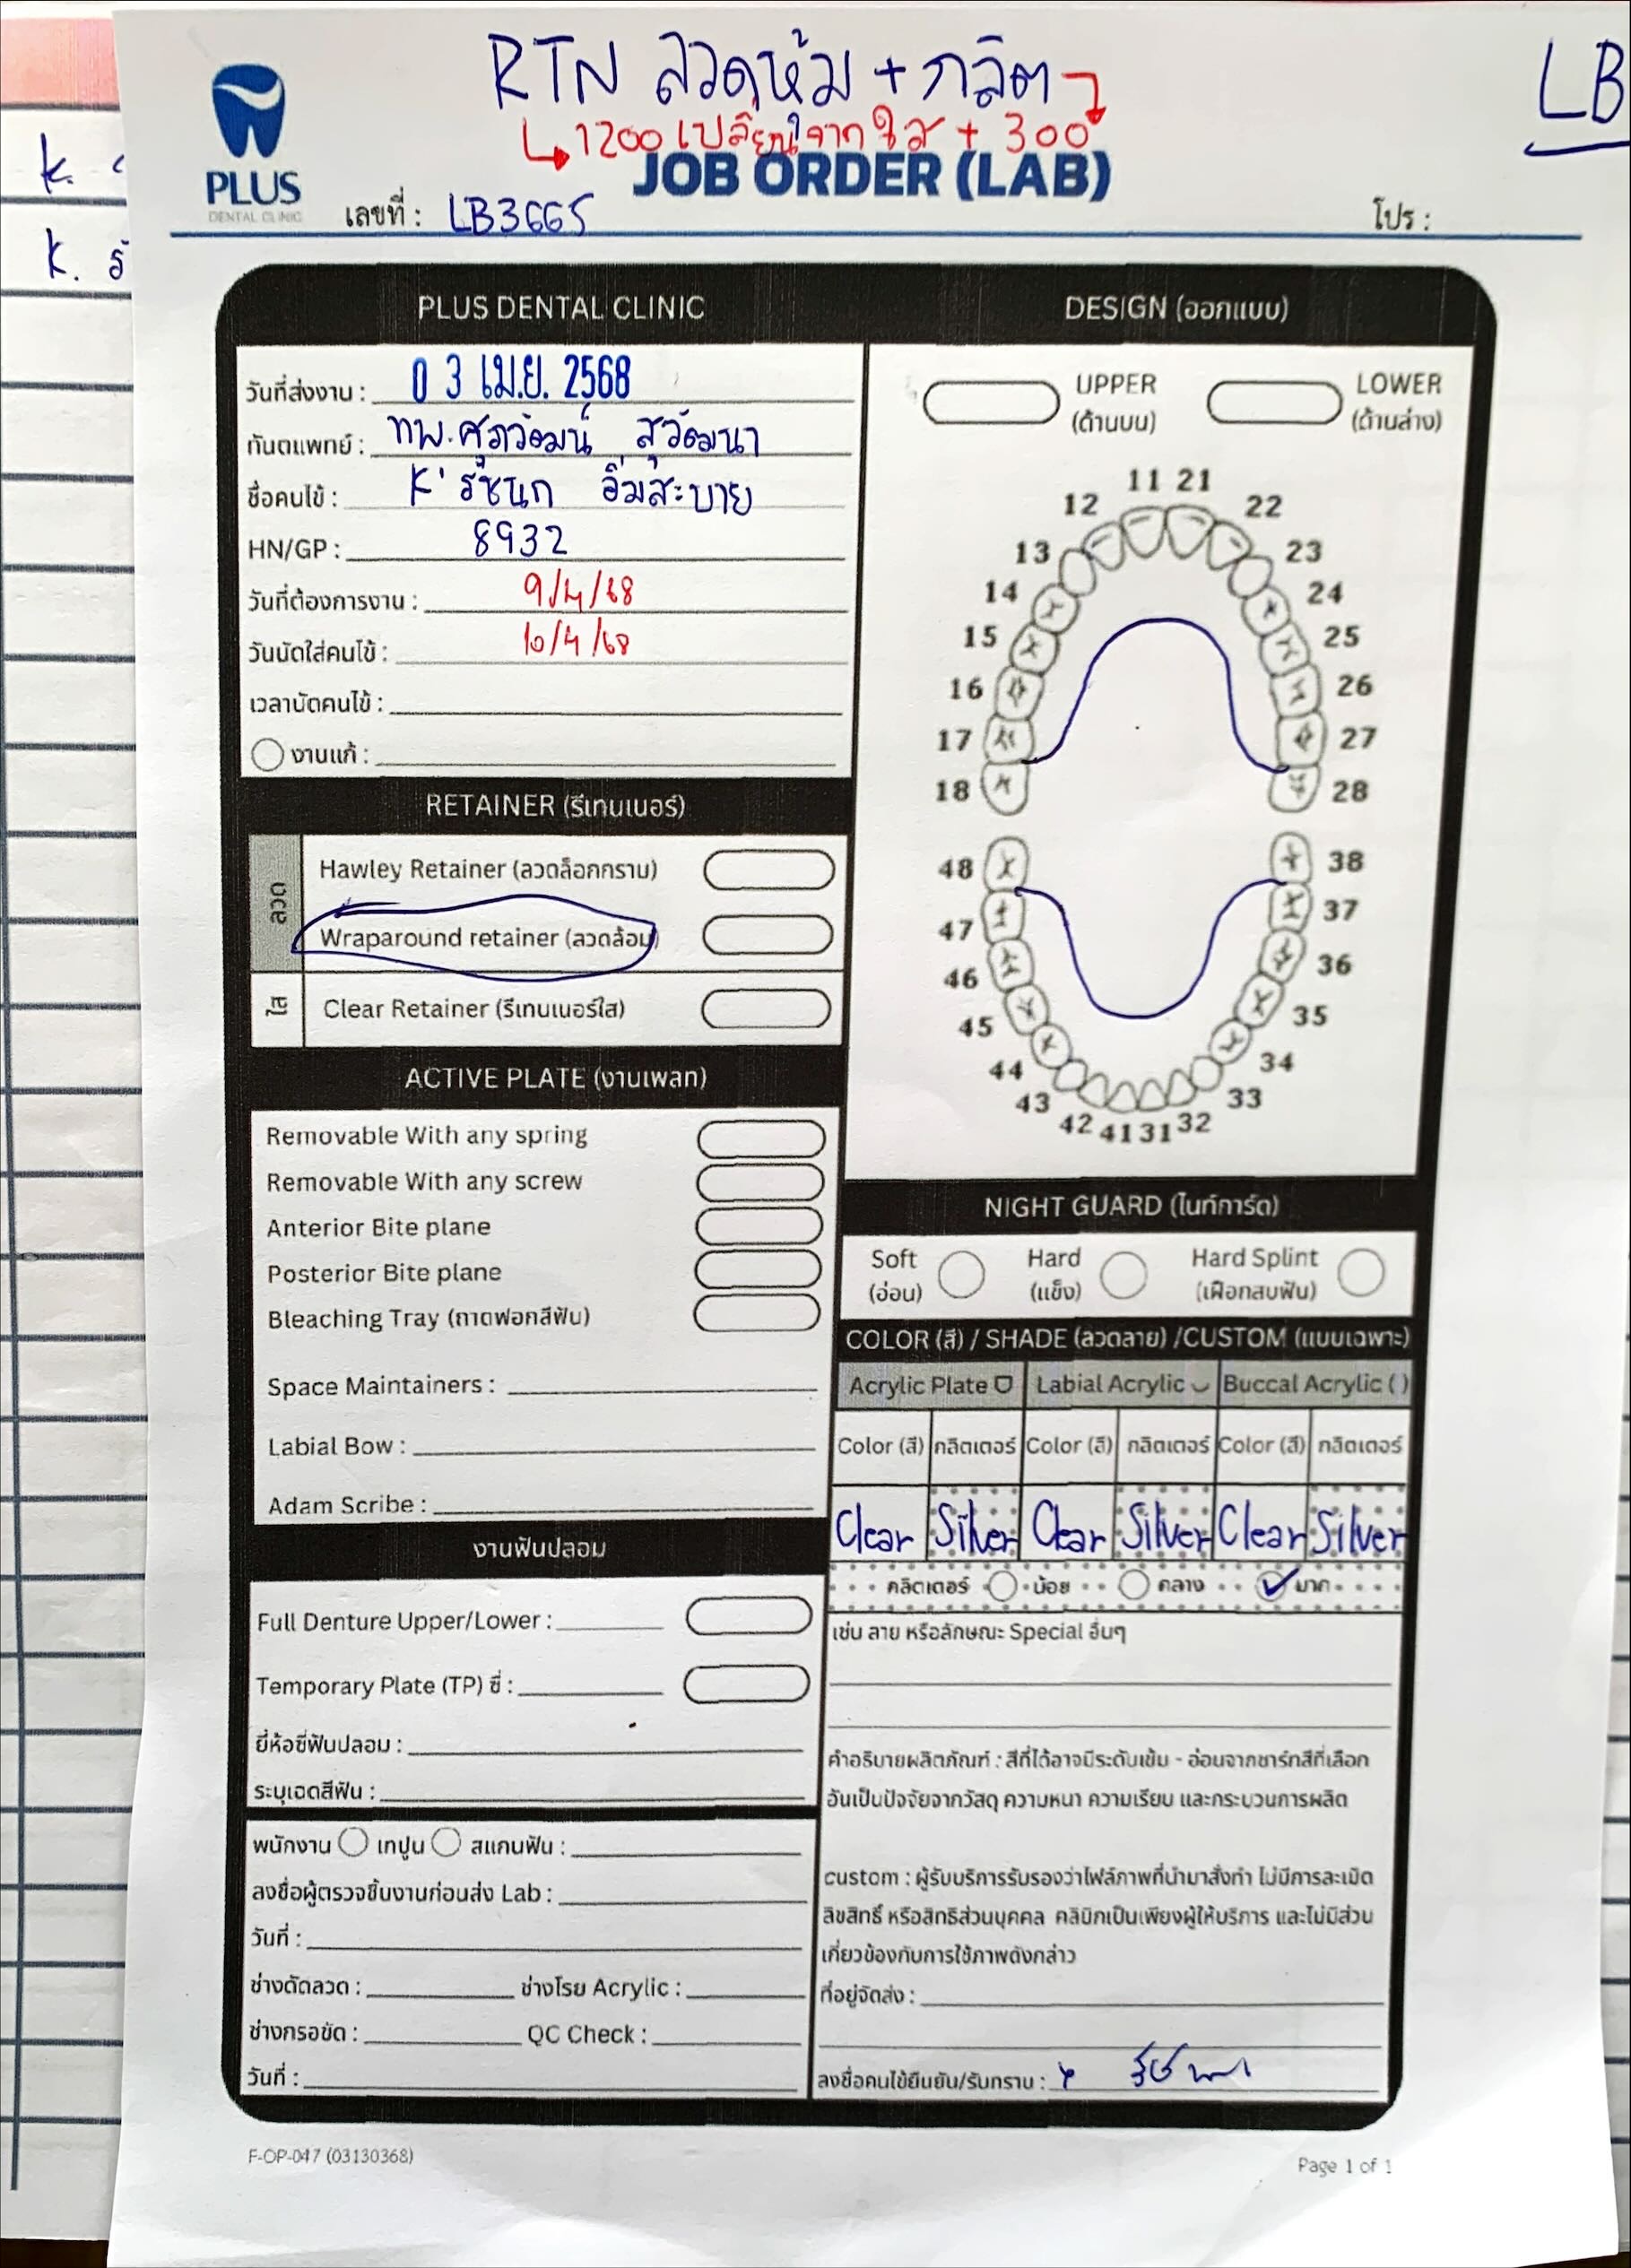 RTN ลวดหุ้ม + กลิต
1200 เปลี่ยนจากใส + 300
LB
PLUS
DENTAL CLINIC
JOB ORDER (LAB)
เลขที่ : LB3665
โปร :
K.
K. รั
PLUS DENTAL CLINIC
วันที่ส่งงาน : 0 3 เม.ย. 2568
ทันตแพทย์ : ทพ.ศุภวัฒน์ สุวัฒนา
ชื่อคนไข้ : K' รัชนก อิ่มสะบาย
HN/GP : 8932
วันที่ต้องการงาน : 9/4/68
วันนัดใส่คนไข้ : 10/4/68
เวลานัดคนไข้ :
งานแก้ :
RETAINER (รีเทนเนอร์)
ลวด
Hawley Retainer (ลวดล็อกกราม)
Wraparound retainer (ลวดล้อม)
ใส
Clear Retainer (รีเทนเนอร์ใส)
ACTIVE PLATE (งานเพลท)
Removable With any spring
Removable With any screw
Anterior Bite plane
Posterior Bite plane
Bleaching Tray (ถาดฟอกสีฟัน)
Space Maintainers :
Labial Bow :
Adam Scribe :
งานฟันปลอม
Full Denture Upper/Lower :
Temporary Plate (TP) ซี่ :
ยี่ห้อซี่ฟันปลอม :
ระบุเฉดสีฟัน :
พนักงาน เทปูน สแกนฟัน :
ลงชื่อผู้ตรวจชิ้นงานก่อนส่ง Lab :
วันที่ :
ช่างดัดลวด : ช่างโรย Acrylic :
ช่างกรอขัด : QC Check :
วันที่ :
DESIGN (ออกแบบ)
UPPER LOWER
(ด้านบน) (ด้านล่าง)
11 21
12 22
13 23
14 24
15 25
16 26
17 27
18 28
48 38
47 37
46 36
45 35
44 34
43 33
42 41 31 32
NIGHT GUARD (ไนท์การ์ด)
Soft Hard Hard Splint
(อ่อน) (แข็ง) (เฝือกสบฟัน)
COLOR (สี) / SHADE (ลวดลาย) /CUSTOM (แบบเฉพาะ)
Acrylic Plate Labial Acrylic Buccal Acrylic ( )
Color (สี) กลิตเตอร์ Color (สี) กลิตเตอร์ Color (สี) กลิตเตอร์
Clear Silver Clear Silver Clear Silver
กลิตเตอร์ น้อย กลาง มาก
เช่น ลาย หรือลักษณะ Special อื่นๆ
คำอธิบายผลิตภัณฑ์ : สีที่ได้อาจมีระดับเข้ม - อ่อนจากชาร์ทสีที่เลือก
อันเป็นปัจจัยจากวัสดุ ความหนา ความเรียบ และกระบวนการผลิต
custom : ผู้รับบริการรับรองว่าไฟล์ภาพที่นำมาสั่งทำ ไม่มีการละเมิด
ลิขสิทธิ์ หรือสิทธิส่วนบุคคล คลินิกเป็นเพียงผู้ให้บริการ และไม่มีส่วน
เกี่ยวข้องกับการใช้ภาพดังกล่าว
ที่อยู่จัดส่ง :
ลงชื่อคนไข้ยืนยัน/รับทราบ :
F-OP-047 (03130368)
Page 1 of 1